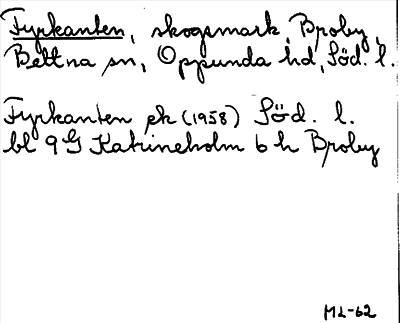 Fyrkanten, skogsmark, Broby,
Bettna sn, Oppunda hd, Söd. l.
Fyrkanten ek (1958) Söd. l.
bl 9G Katrineholm 6 h Broby
ML-62